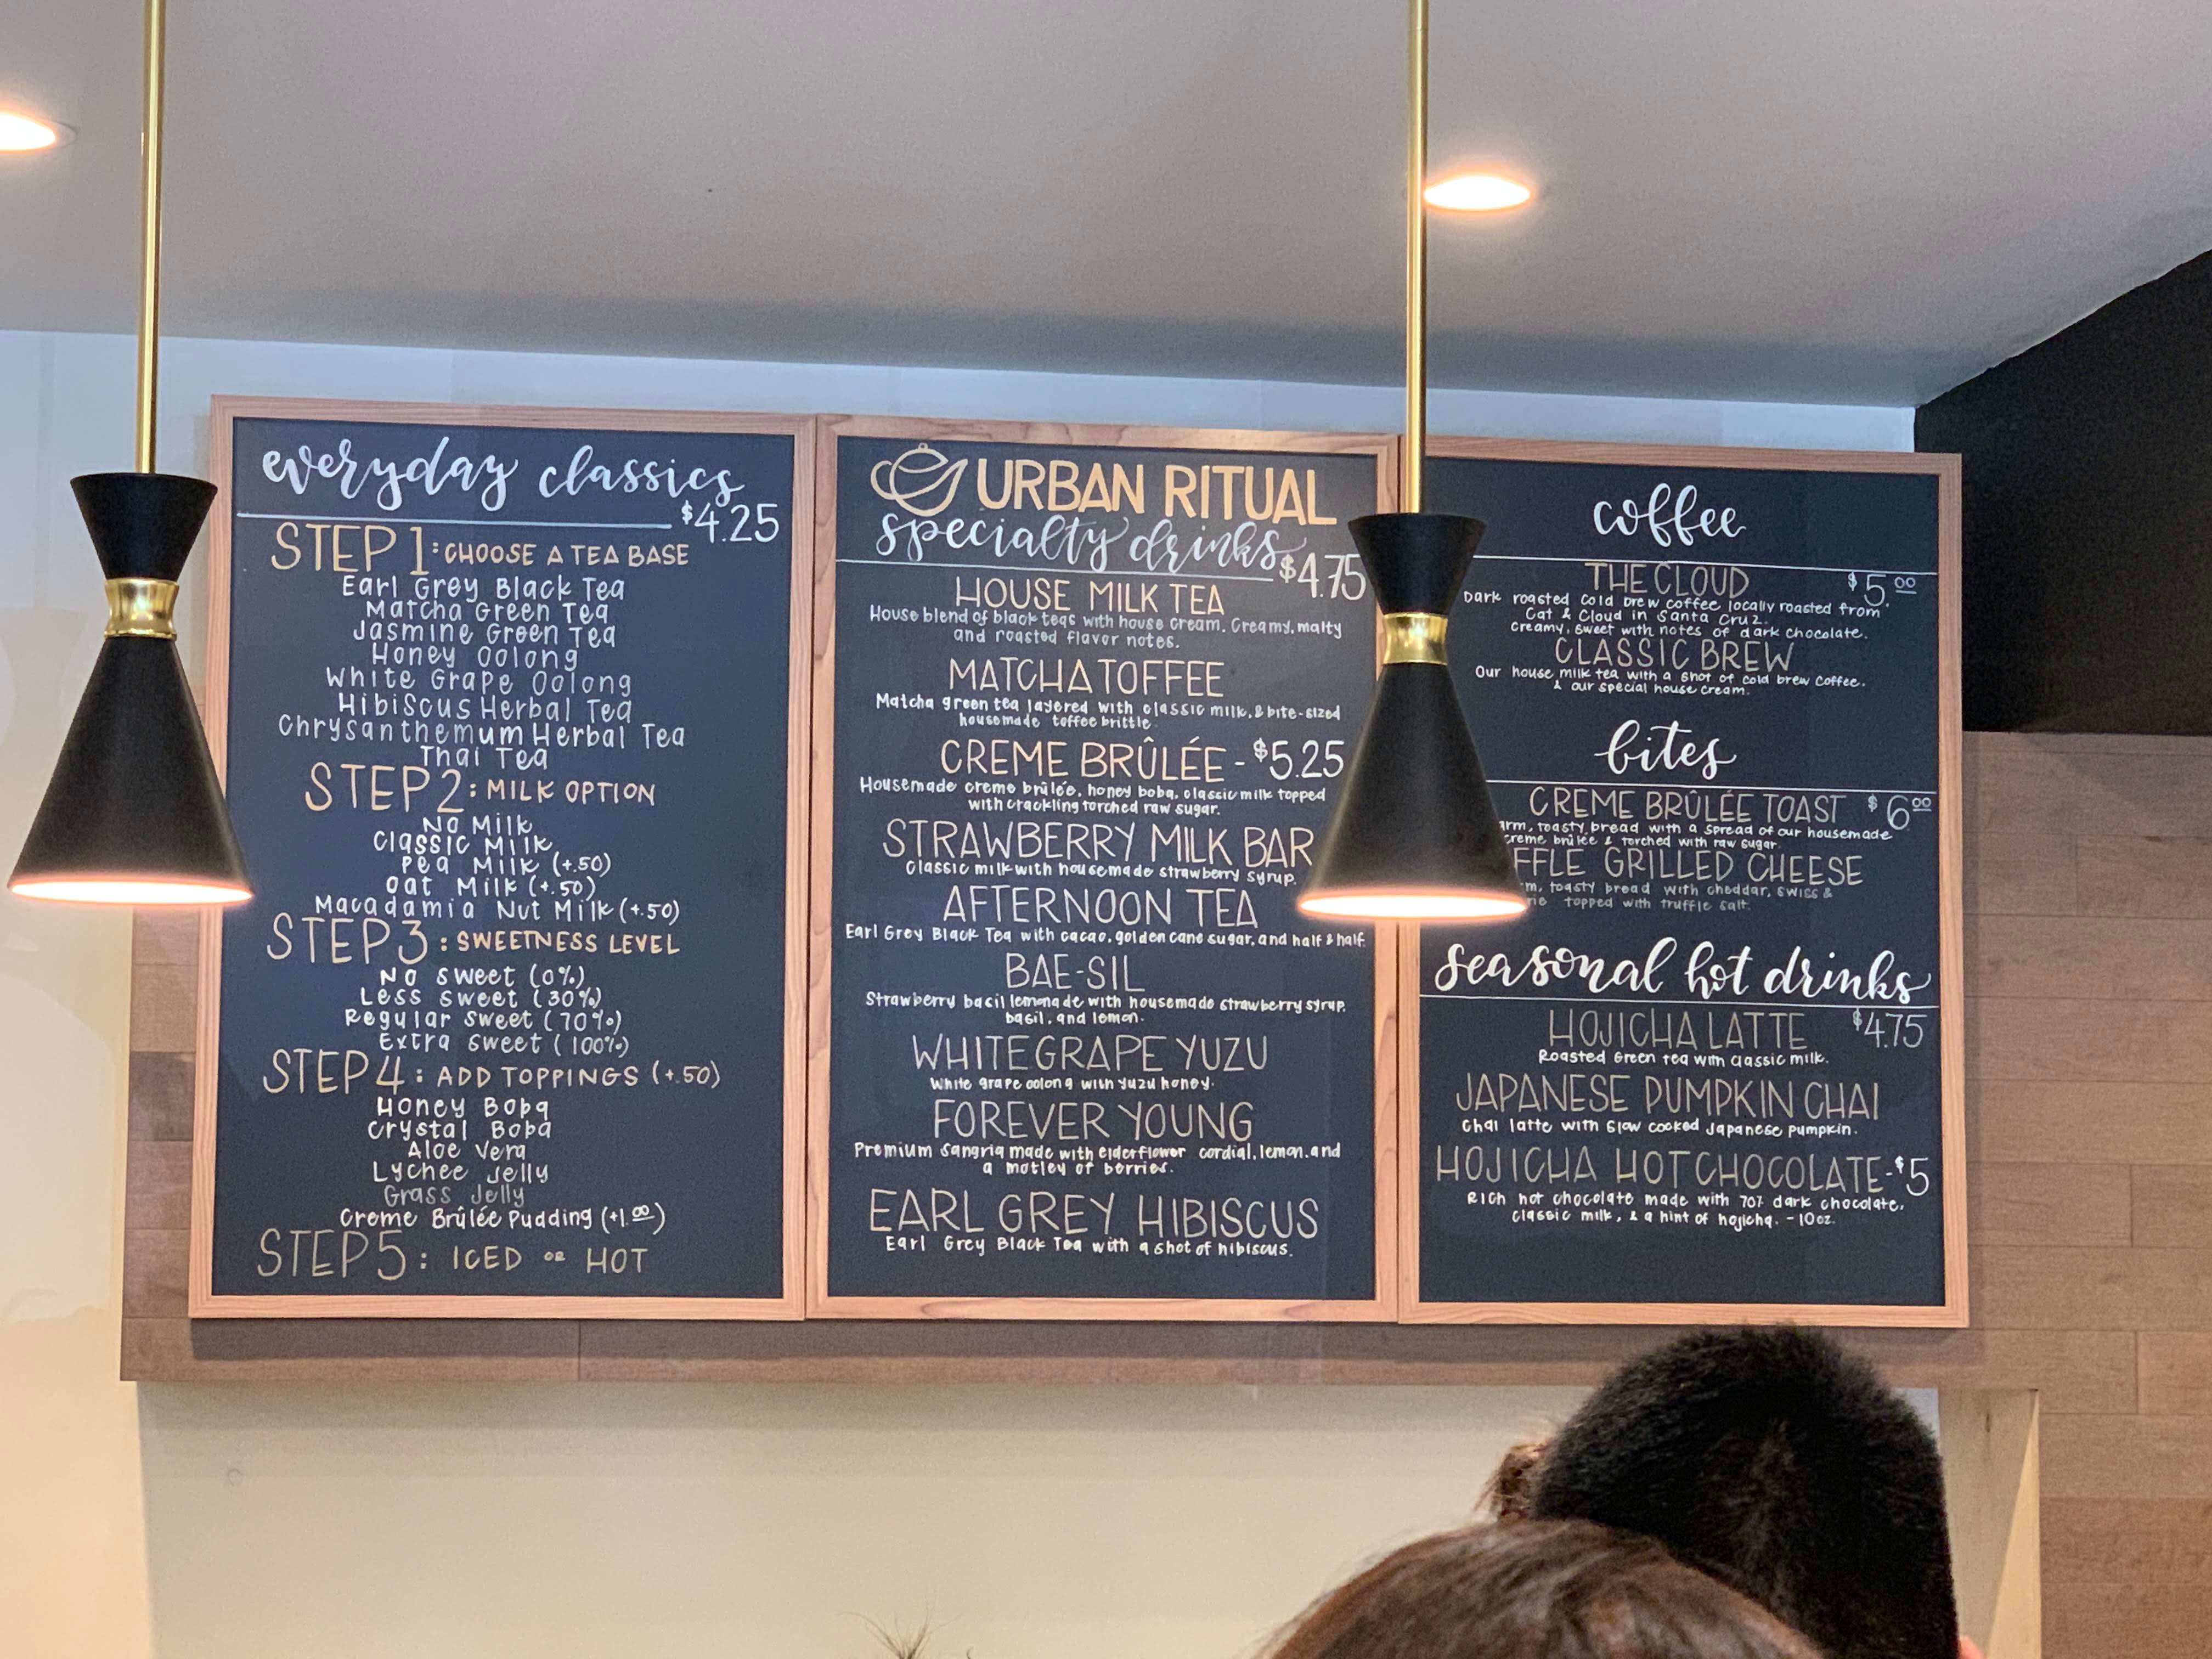 everyday classics
$4.25
STEP 1: CHOOSE A TEA BASE
Earl Grey Black Tea
Matcha Green Tea
Jasmine Green Tea
Honey Oolong
White Grape Oolong
Hibiscus Herbal Tea
Chrysanthemum Herbal Tea
Thai Tea
STEP 2: MILK OPTION
No Milk
Classic Milk
Pea Milk (+.50)
Oat Milk (+.50)
Macadamia Nut Milk (+.50)
STEP 3: SWEETNESS LEVEL
No Sweet (0%)
Less Sweet (30%)
Regular Sweet (70%)
Extra Sweet (100%)
STEP 4: ADD TOPPINGS (+.50)
Honey Boba
Crystal Boba
Aloe Vera
Lychee Jelly
Grass Jelly
Creme Brûlée Pudding (+1.00)
STEP 5: ICED OR HOT
URBAN RITUAL
specialty drinks
$4.75
HOUSE MILK TEA
House blend of black teas with house cream. Creamy, malty
and roasted flavor notes.
MATCHA TOFFEE
Matcha green tea layered with classic milk, & bite-sized
housemade toffee brittle.
CREME BRÛLÉE - $5.25
Housemade creme brûlée, honey boba, classic milk topped
with crackling torched raw sugar.
STRAWBERRY MILK BAR
Classic milk with housemade strawberry syrup.
AFTERNOON TEA
Earl Grey Black Tea with cacao, golden cane sugar, and half & half.
BAE-SIL
Strawberry basil lemonade with housemade strawberry syrup,
basil, and lemon.
WHITE GRAPE YUZU
White grape oolong with yuzu honey.
FOREVER YOUNG
Premium Sangria made with elderflower cordial, lemon, and
a motley of berries.
EARL GREY HIBISCUS
Earl Grey Black Tea with a shot of hibiscus.
coffee
THE CLOUD $5.00
Dark roasted cold brew coffee locally roasted from
Cat & Cloud in Santa Cruz.
Creamy, sweet with notes of dark chocolate.
CLASSIC BREW
Our house milk tea with a shot of cold brew coffee.
& our special house cream.
bites
CREME BRÛLÉE TOAST $6.00
toasty bread with a spread of our housemade
creme brûlée & torched with raw sugar.
GRILLED CHEESE
toasty bread with cheddar, swiss &
topped with truffle salt.
seasonal hot drinks
HOJICHA LATTE $4.75
Roasted Green tea with classic milk.
JAPANESE PUMPKIN CHAI
Chai latte with slow cooked Japanese pumpkin.
HOJICHA HOT CHOCOLATE-$5
Rich hot chocolate made with 70% dark chocolate,
classic milk, & a hint of hojicha. - 10oz.